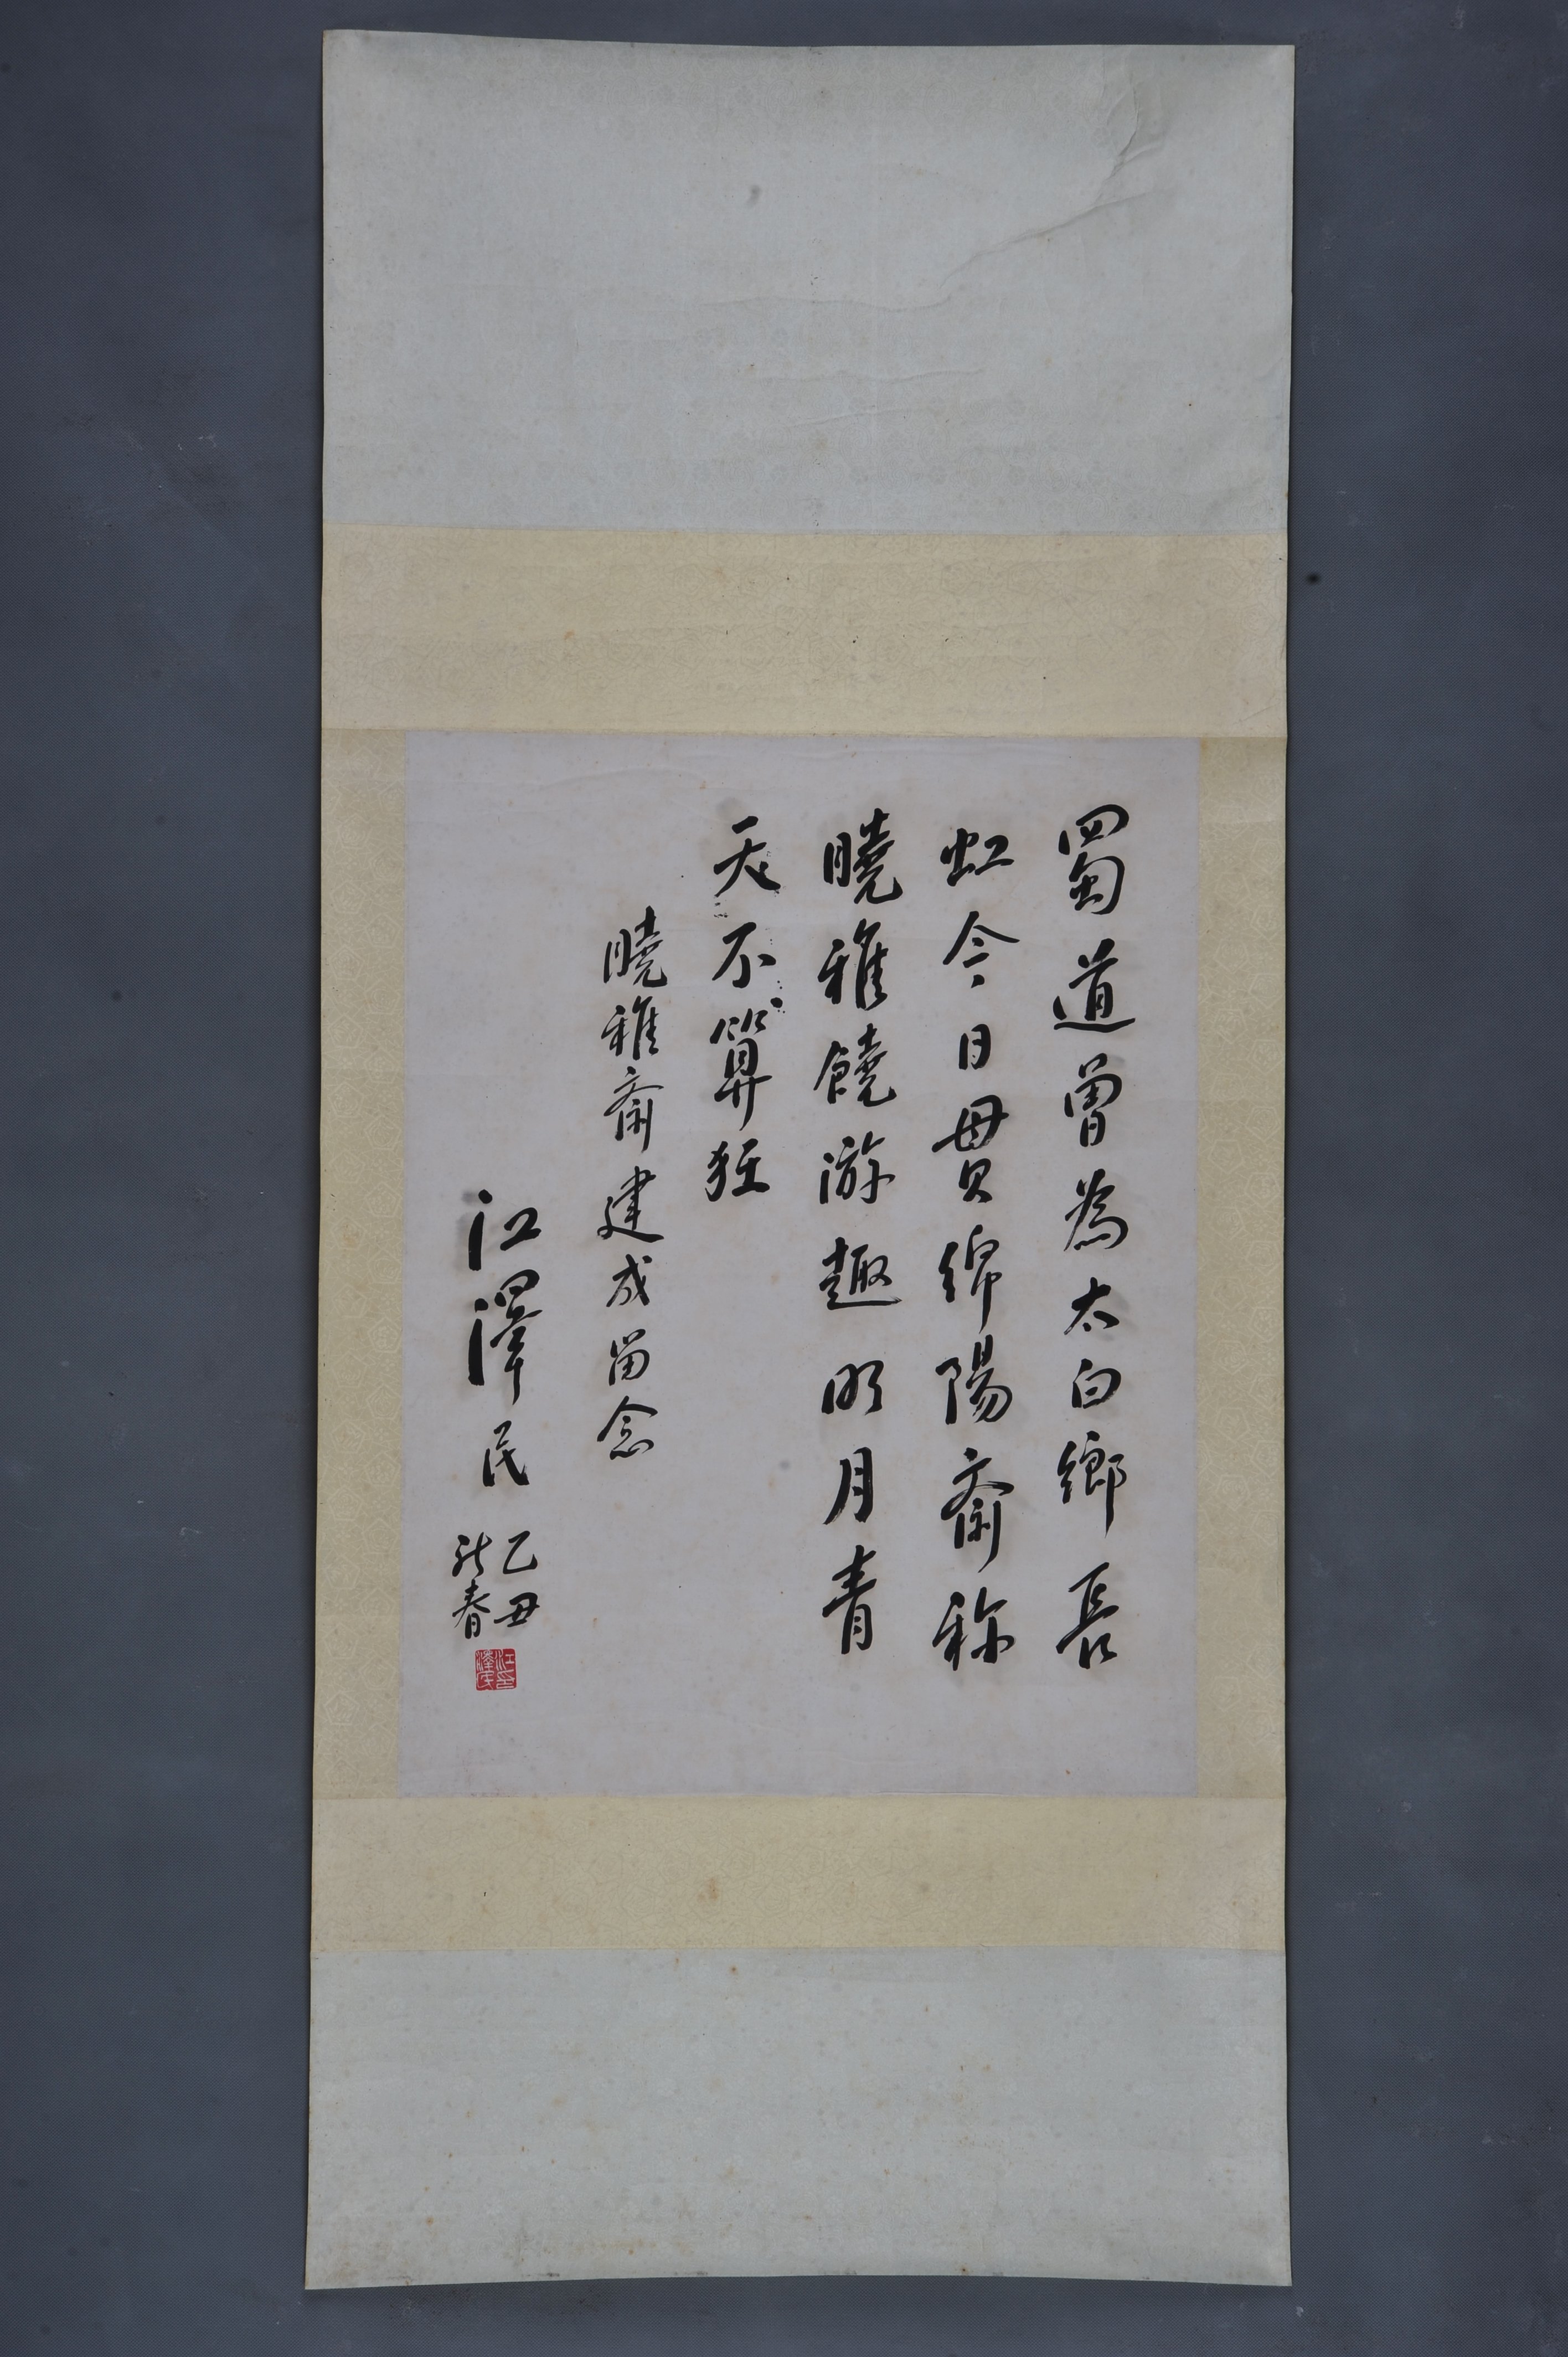 蜀道曾為太白鄉長
虹今日貫綿陽齋稱
曉雅饒游趣明月青
天不算狂
曉雅齋建成留念
江澤民
乙丑
新春
江澤民印